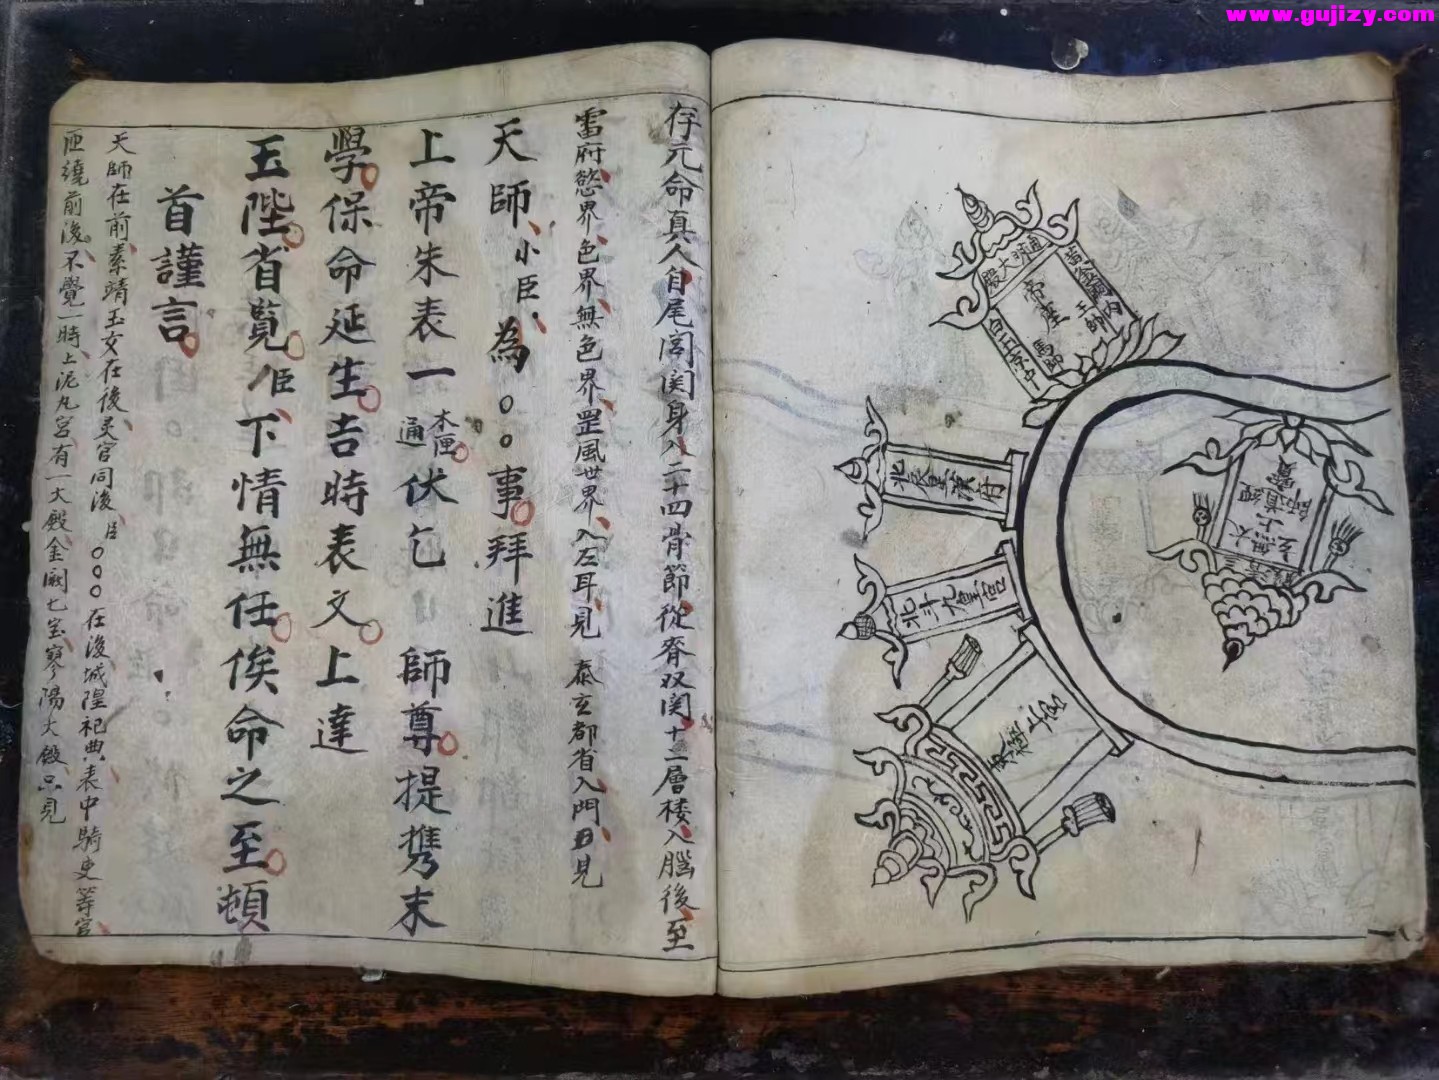 www.gujizy.com
通明大殿
黃金闕內
帝座
王帥
馬帥
白玉京中
北斗九皇宮
東極上宮
無上
大
玄
師經道寶
存元命真人自尾閭関身入二十四骨節從脊双関十二層楼入腦後至
雷府慾界色界無色界罡風世界入左耳見 泰玄都省入門丑見
天師小臣為○○事拜進
上帝朱表一通木匣伏乞 師尊提携末
學保命延生吉時表文上達
玉陛省覽臣下情無任俟命之至頓
首謹言
天師在前素靖玉女在後灵官同後臣○○○在後城隍祀典表中騎吏等官
匝繞前後不覺一時上泥丸宮有一大殿金闕七宝寥陽大殿只見